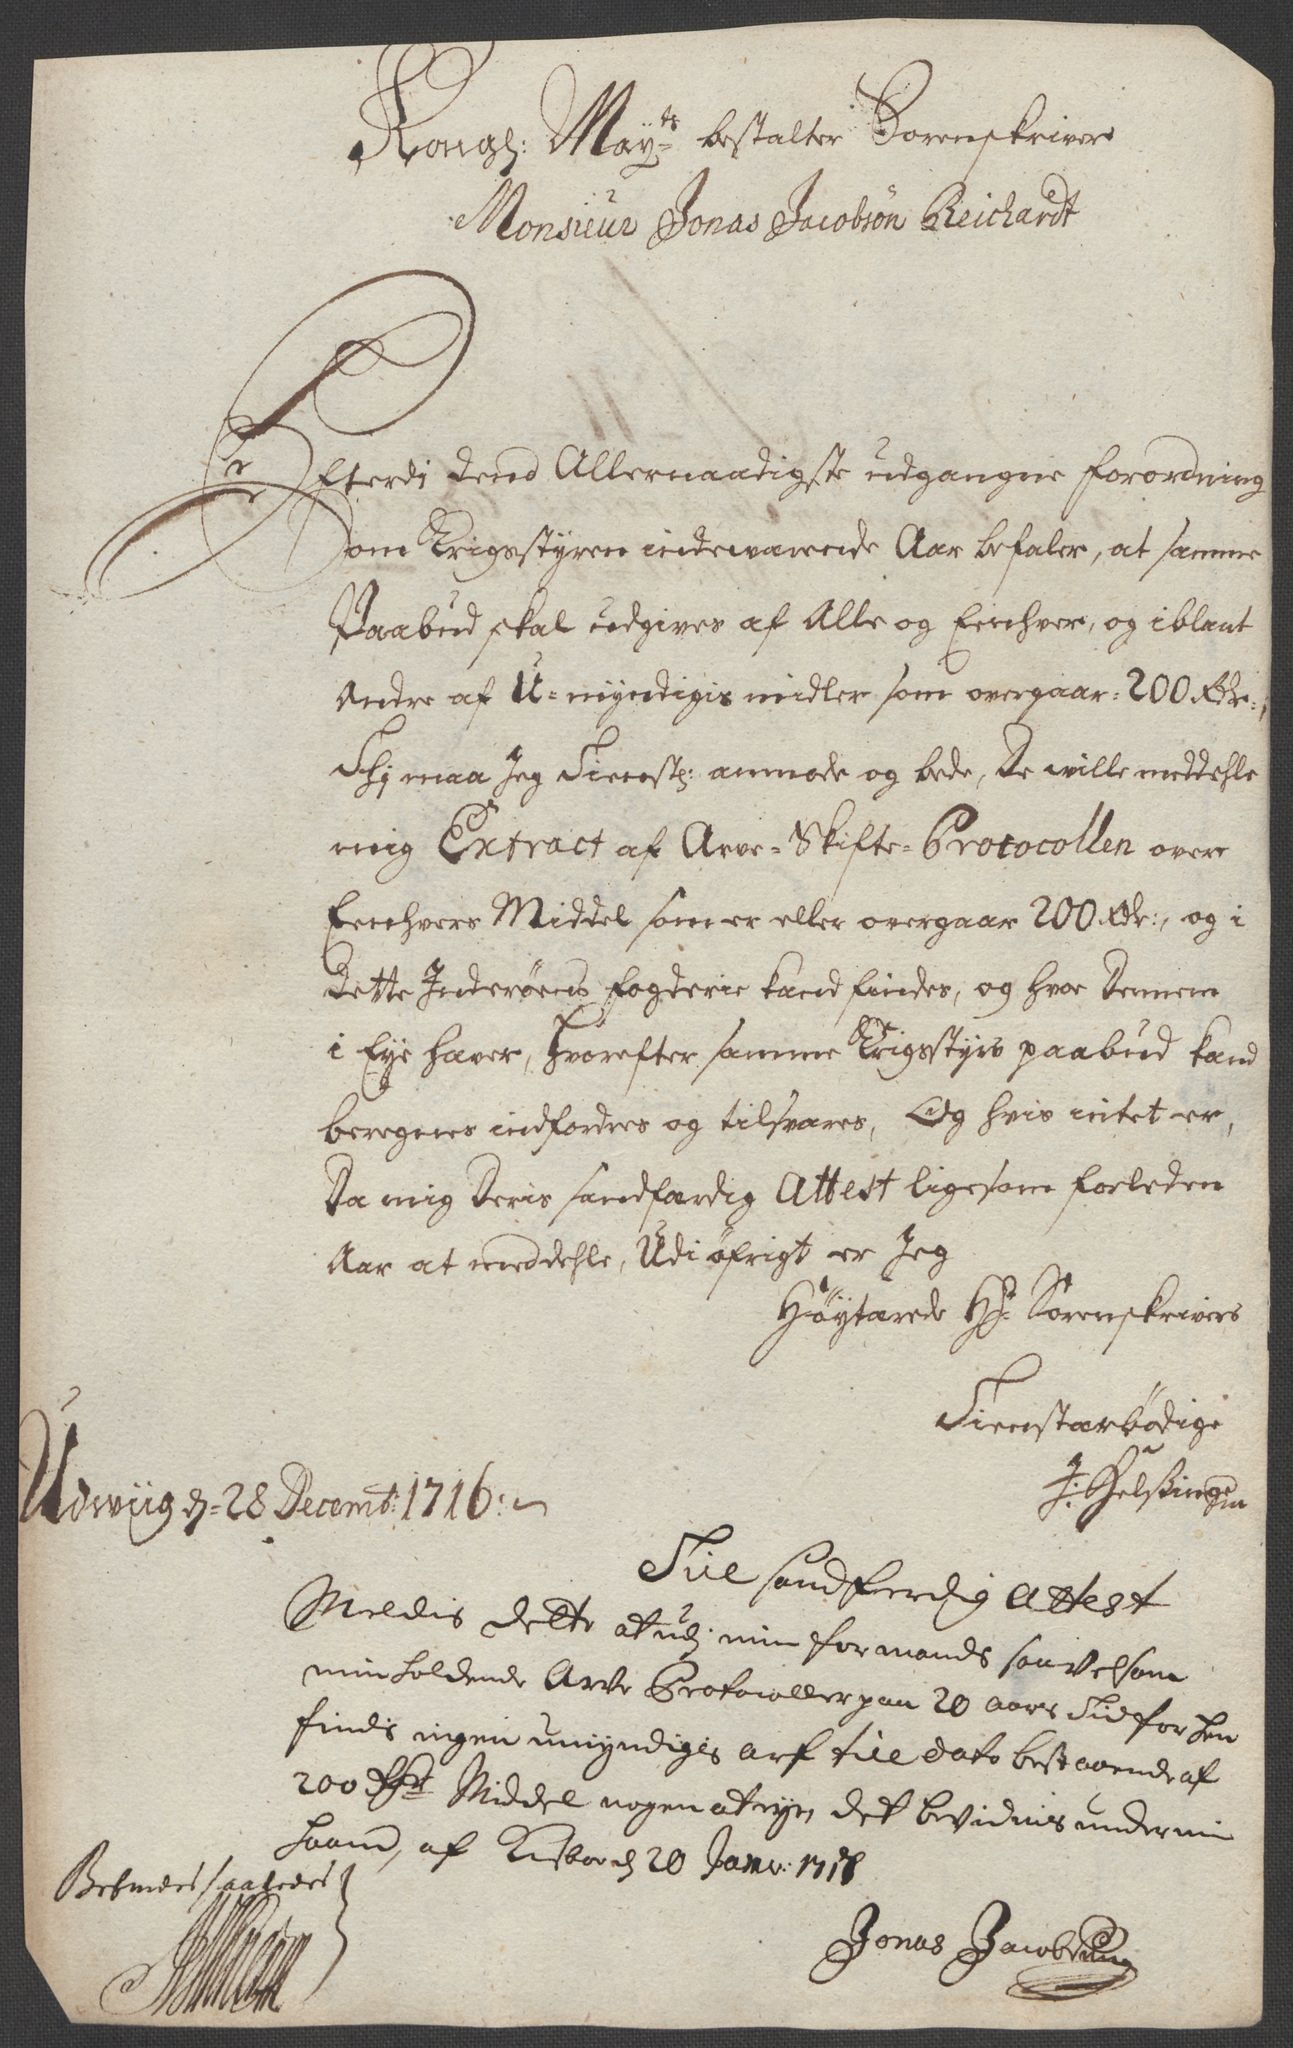 Kongl: May:ts bestalter Sorenskriver
Monsieur Jonas Jacobsøn Reichardt
Efterdj dend Allernaadigste udgangne forordning
om Krigsstyren indeværende Aar befaler, at samme
Paabud skal udgives af Alle og Eenhver, og iblant
Andre af U-myndigis midler som overgaar: 200 Rdr:,
Thj maa Jeg Tienstl: anmode og bede, De wille meddehle
mig Extract af Arve-Skifte-Protocollen over
Eenhvers Middel som er eller overgaar 200 Rdr:, og i
dette Inderøens fogderie kand findes, og hvor Dennem
i Eye haver, hvorefter samme Krigsstyrs paabud kand
beregnes indfordres og tilsvares, Og hvis intet er,
Da mig Deris sandfærdig Attest ligesom forleden
Aar at meddehle, Udi øfrigt er Jeg
Høytærede Hr: Sorenskrivers
Tienstærbødige
J: Helsing
Udviig d= 28 Decembr: 1716:
Till sandferdig Attest
Meldis dette at udj min formands saavelsom
min holdende Arve Protocoller paa 20 aars Tid for hen
findis ingen umyndigis arf till dato bestaaende af
200 Rdr Middel nogen at eye, det bevidnis under min
haand, af d 20 Janv: 1717
Bekiendes saaledes
Jonas Jacobsøn